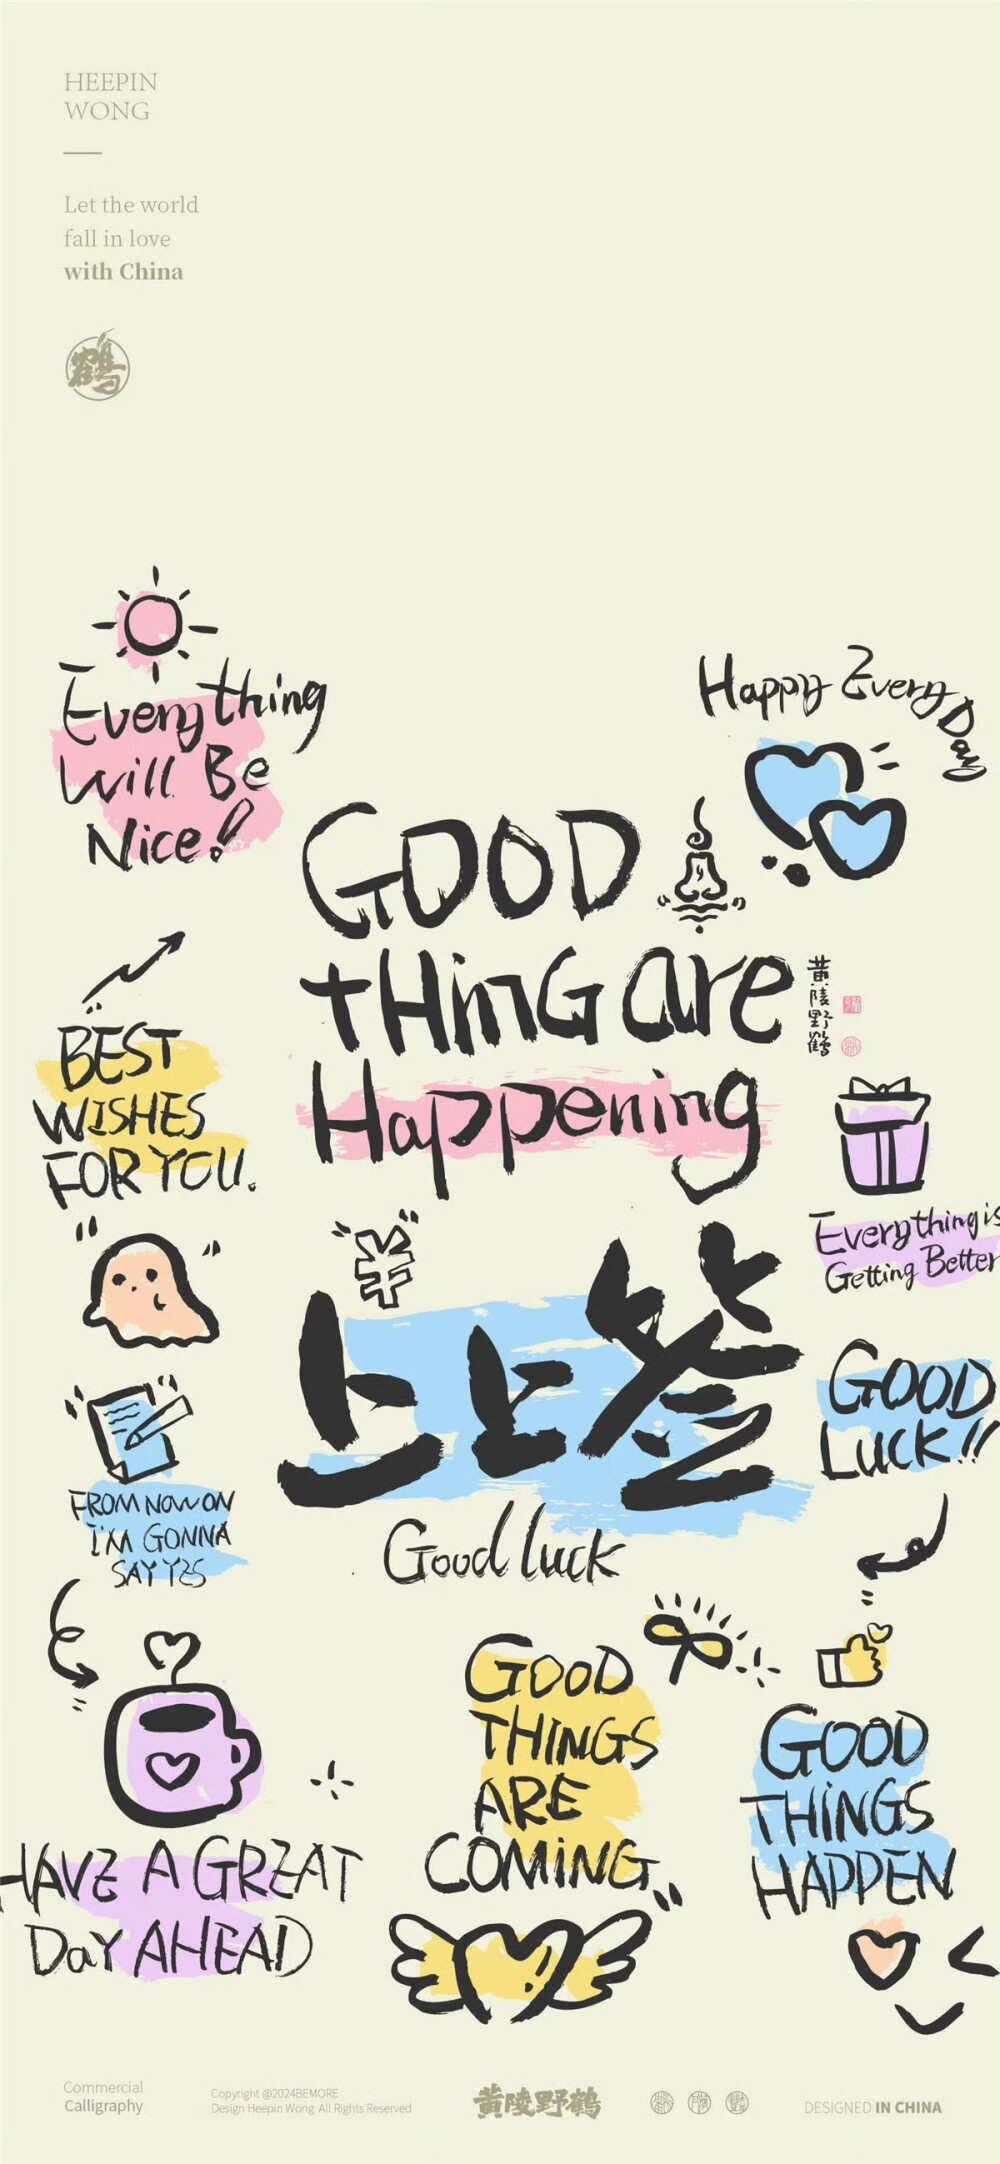 HEEPIN
WONG
Let the world
fall in love
with China
鶴
Everything
Will Be
Nice!
Happy Every Day
GOOD
tHinG are
Happening
黄陵野鶴
BEST
WISHES
FOR YOU.
Everything is
Getting Better
上上签
Good luck
GOOD
LUCK!!
FROM NOW ON
I'M GONNA
SAY YES
GOOD
THINGS
ARE
COMING
GOOD
THiNGS
HAPPEN
HAVE A GREAT
DaY AHEAD
Commercial
Calligraphy
Copyright @2024BEMORE
Design Heepin Wong All Rights Reserved
黄陵野鶴
DESIGNED IN CHINA